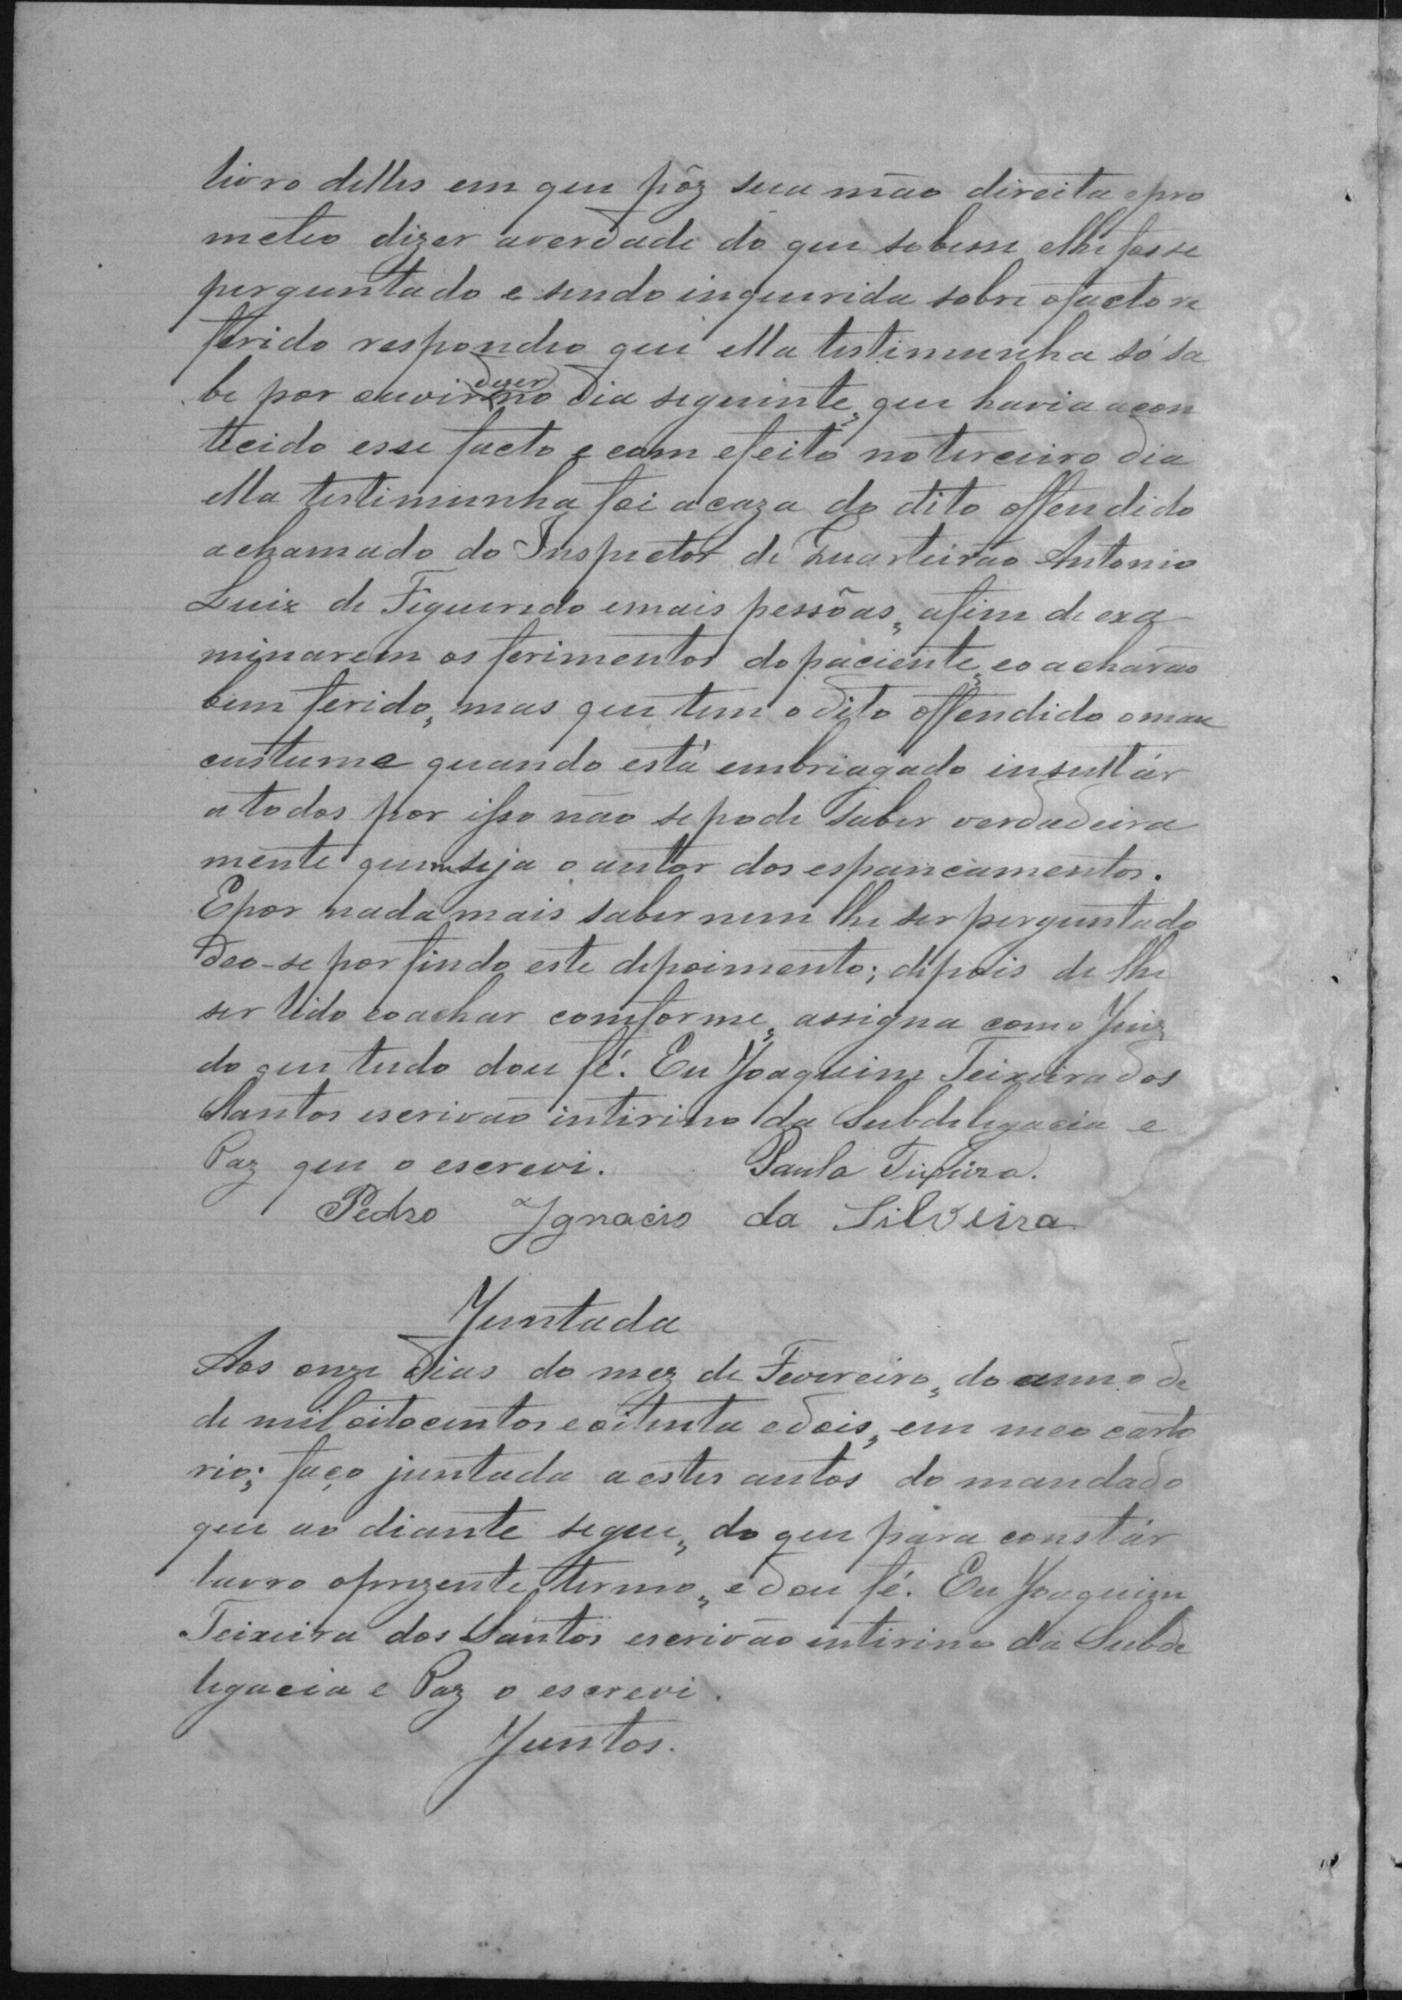 livro delles em que pôz sua mão direita epro
meteo dizer averdade do que sobesse elhe fosse
perguntado e sendo inquirida sobre ofacto re
ferido respondeo que ella testimunha só sa
be por ouvir dizer no dia seguinte, que havia acon
tecido esse facto e com efeito noterceiro dia
ella testimunha foi acaza do dito offendido
achamado do Inspector de Quarteirão Antonio
Luiz de Figueredo emais pessôas, afim de exa
minarem os ferimentos do paciente, eo acharão
bem ferido, mas que tem o dito offendido o mau
custume quando está embriagado insultár
atodos por isso não sepode saber verdadeira
mente quem seja o autor dos espancamentos.
Epor nada mais saber nem lhe ser perguntado
deo-se por findo este depoimento; depois de lhe
ser lido eoachar comforme, assigna com o Juiz
do que tudo dou fé. Eu Joaquim Teixeira dos
Santos escrivão intirino da Subdelegacia e
Paz que o escrevi. Paula Teixeira.
Pedro Ignacio da Silveira
Juntada
Aos onze dias do mez de Fevereiro, do anno de
de mil oitocentos eoitenta edois, em meo carto
rio; faço juntada a estes autos do mandado
que ao diante segue, do que para constár
lavro oprezente termo, e dou fé. Eu Joaquim
Teixeira dos Santos escrivão intirino da Subde
legacia e Paz o escrevi.
Juntos.